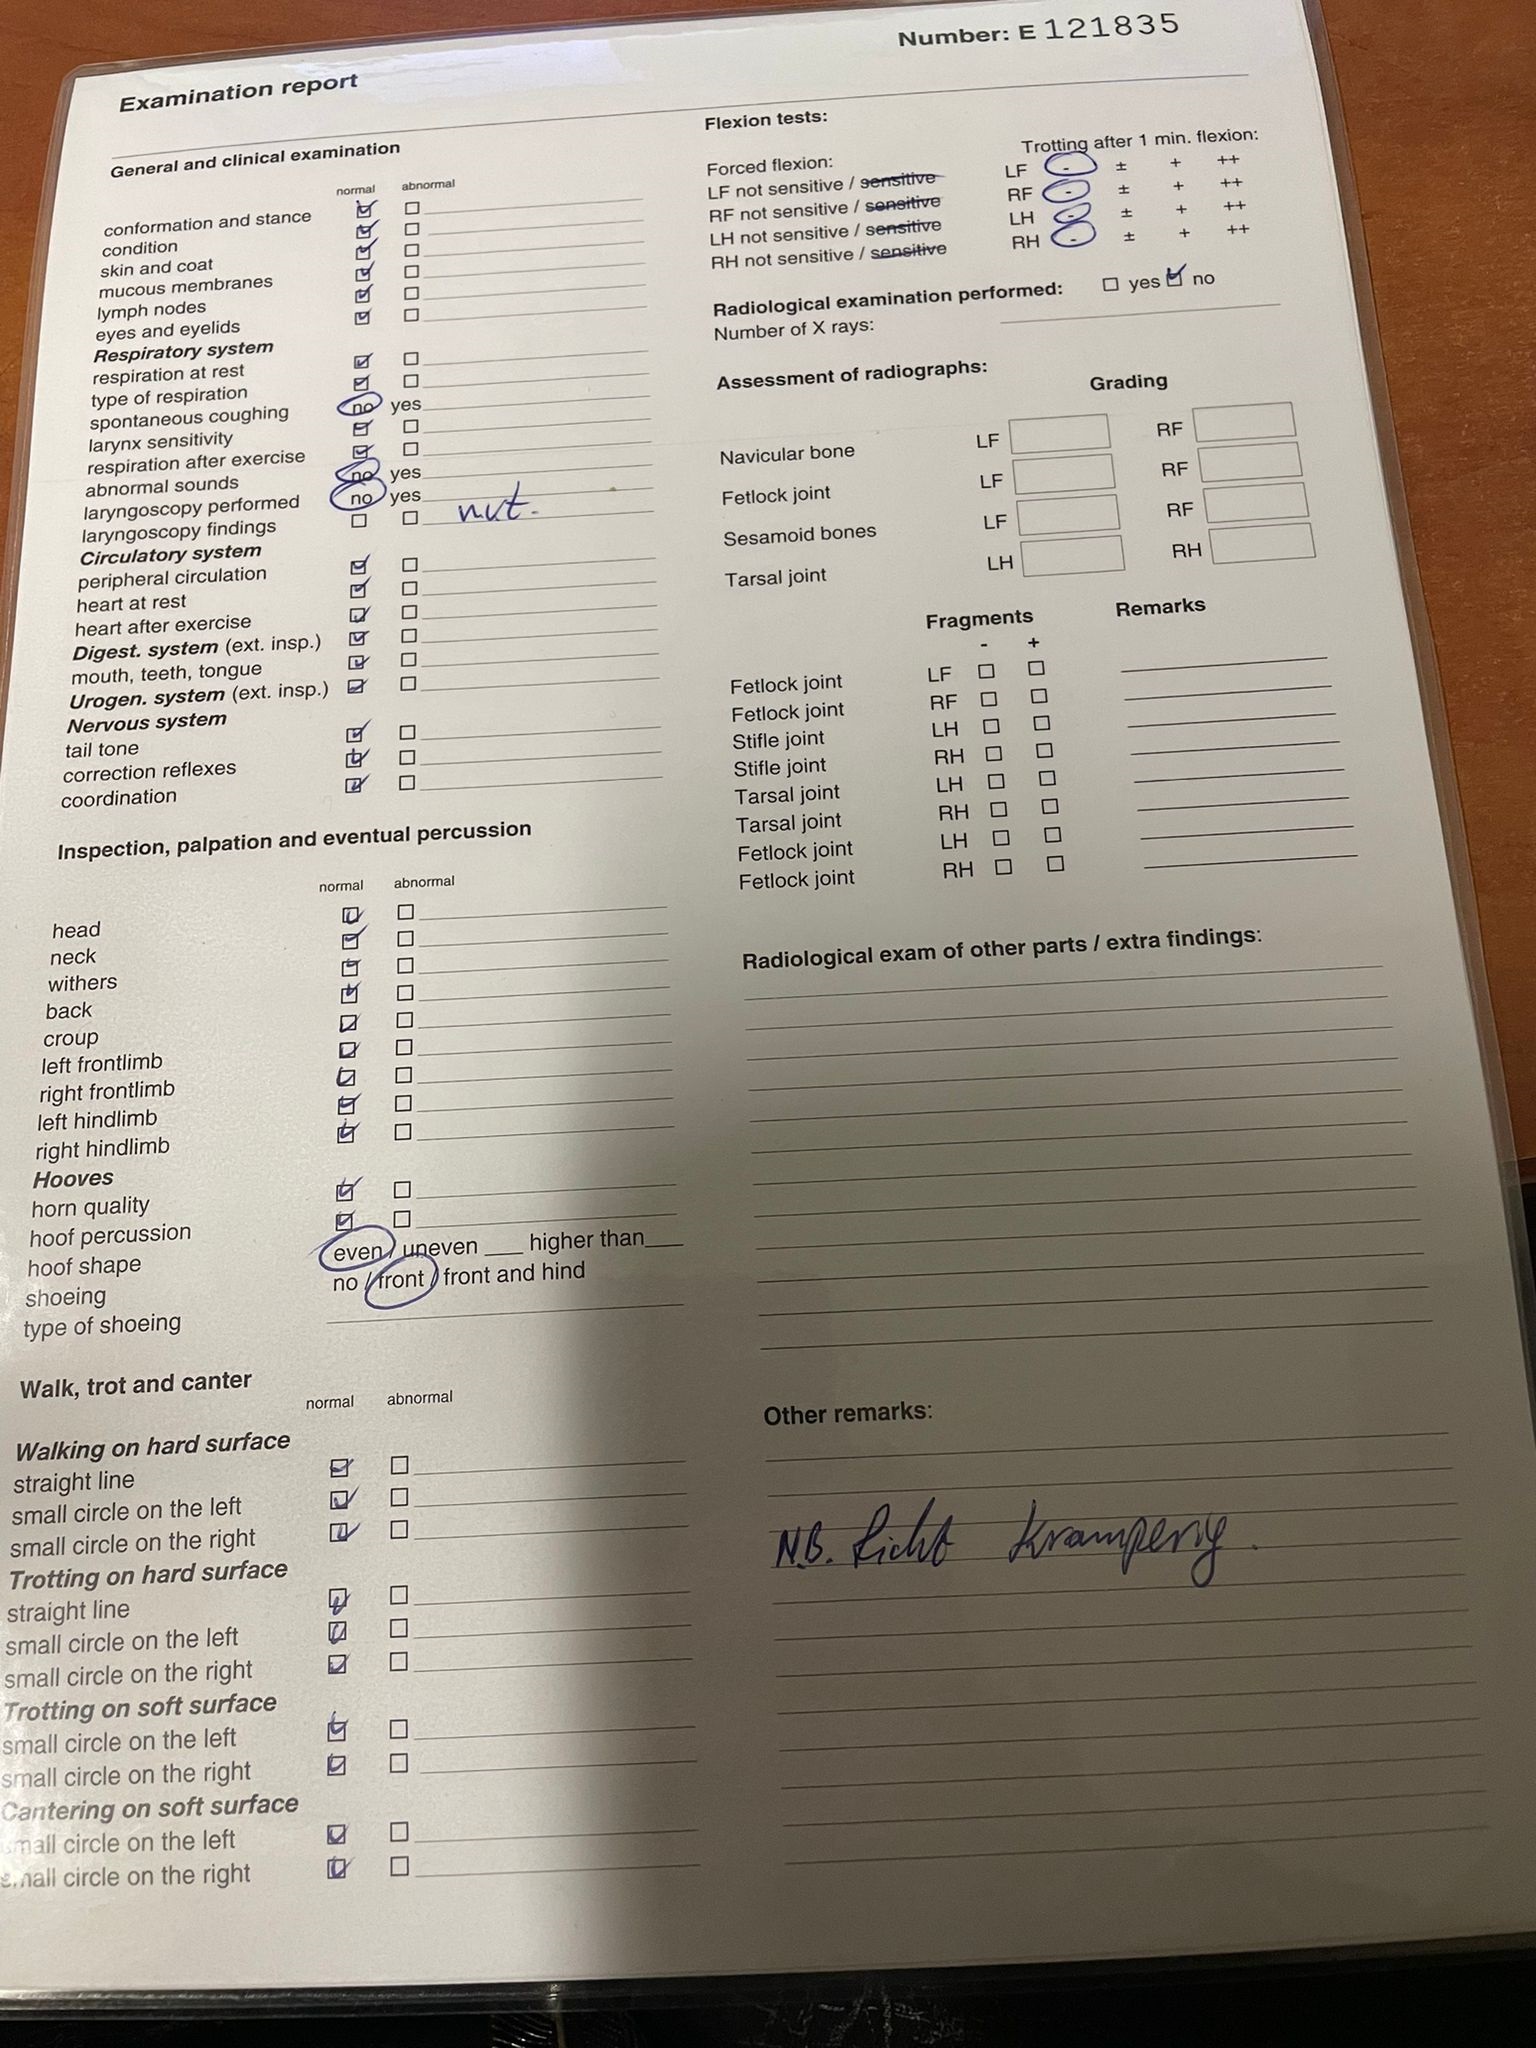 Number: E 121835
Examination report
General and clinical examination
normal abnormal
conformation and stance
condition
skin and coat
mucous membranes
lymph nodes
eyes and eyelids
Respiratory system
respiration at rest
type of respiration
spontaneous coughing no yes
larynx sensitivity
respiration after exercise
abnormal sounds no yes
laryngoscopy performed no yes
laryngoscopy findings
Circulatory system
peripheral circulation
heart at rest
heart after exercise
Digest. system (ext. insp.)
mouth, teeth, tongue
Urogen. system (ext. insp.)
Nervous system
tail tone
correction reflexes
coordination
Inspection, palpation and eventual percussion
normal abnormal
head
neck
withers
back
croup
left frontlimb
right frontlimb
left hindlimb
right hindlimb
Hooves
horn quality
hoof percussion
hoof shape even / uneven ___ higher than ___
shoeing no / front / front and hind
type of shoeing
Walk, trot and canter
normal abnormal
Walking on hard surface
straight line
small circle on the left
small circle on the right
Trotting on hard surface
straight line
small circle on the left
small circle on the right
Trotting on soft surface
small circle on the left
small circle on the right
Cantering on soft surface
small circle on the left
small circle on the right
Flexion tests:
Forced flexion: Trotting after 1 min. flexion:
LF not sensitive / sensitive LF - ± + ++
RF not sensitive / sensitive RF - ± + ++
LH not sensitive / sensitive LH - ± + ++
RH not sensitive / sensitive RH - ± + ++
Radiological examination performed: yes no
Number of X rays:
Assessment of radiographs:
Grading
Navicular bone LF RF
Fetlock joint LF RF
Sesamoid bones LF RF
Tarsal joint LH RH
Fragments Remarks
- +
Fetlock joint LF
Fetlock joint RF
Stifle joint LH
Stifle joint RH
Tarsal joint LH
Tarsal joint RH
Fetlock joint LH
Fetlock joint RH
Radiological exam of other parts / extra findings:
Other remarks:
N.B. Licht Kramperig.